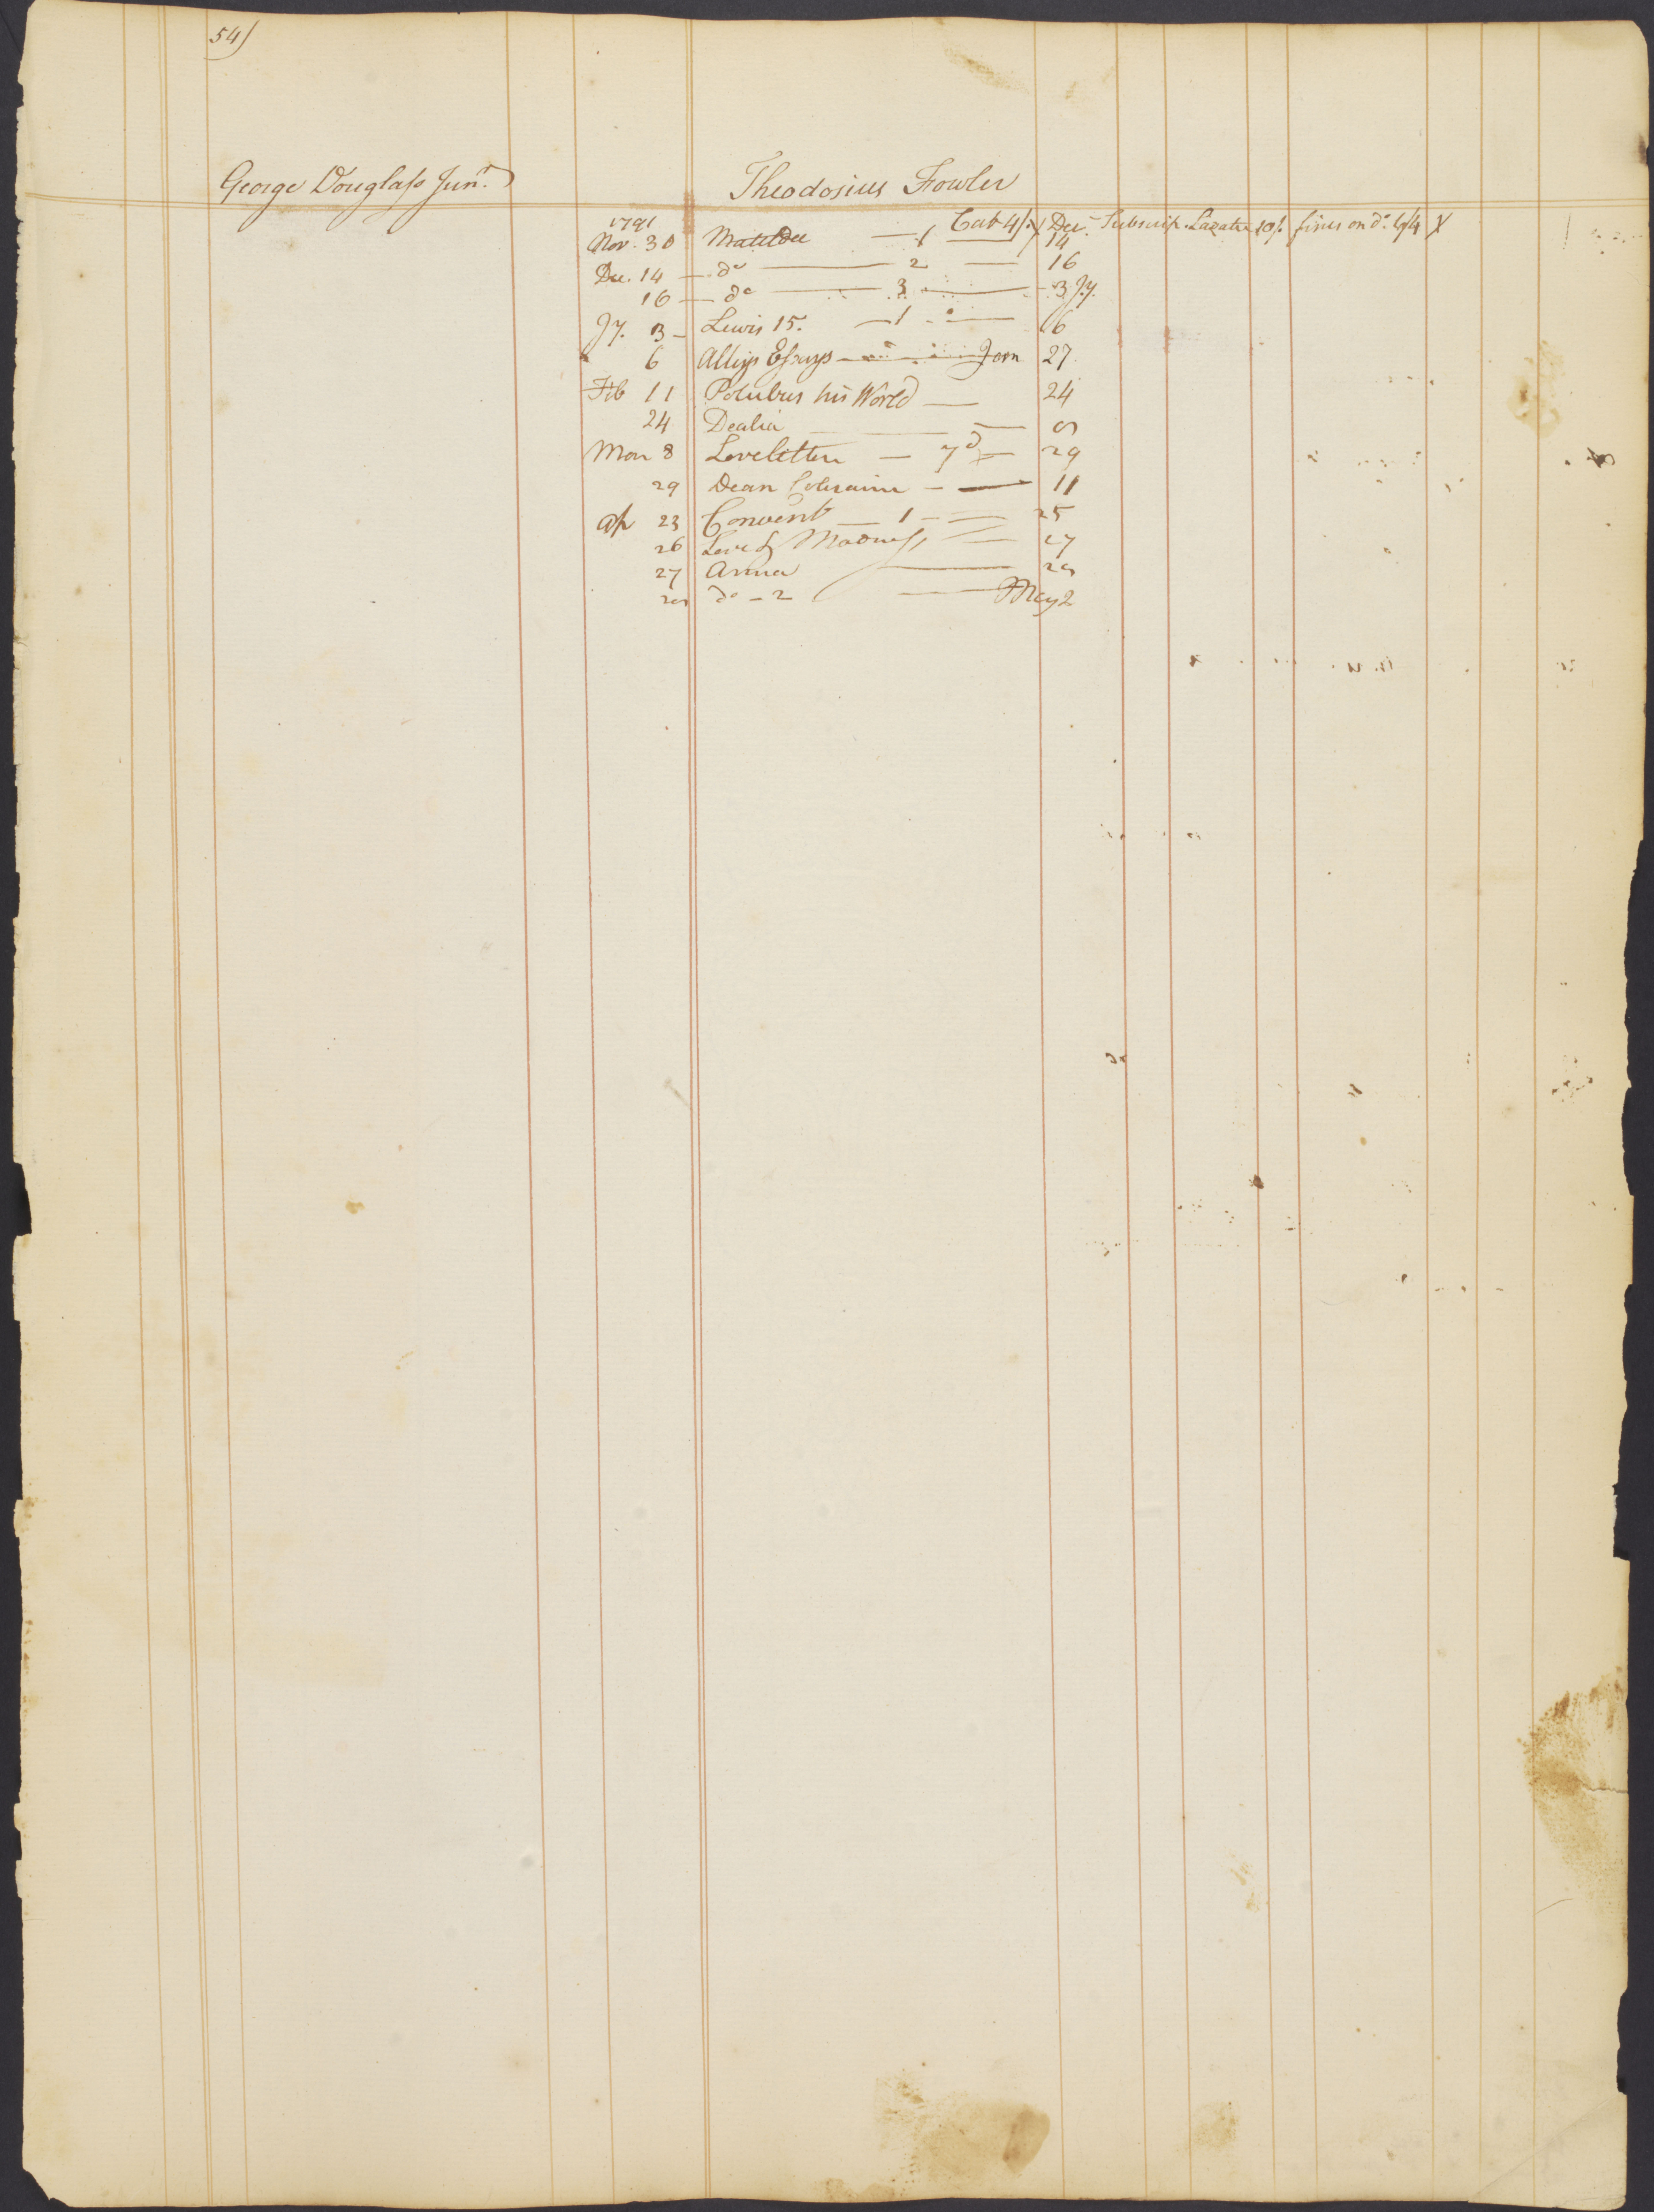 54)
George Douglass Junr.
Theodosius Fowler
1791 Cab 4/. Dec. Subscrip. fines on do.
Nov. 30 Matilda — 1 — 14
Dec. 14 — do — 2 — 16
16 — do — 3 — 3 Jy.
Jy. 3 — Lewis 15. — 1 — 6
6 Essays — 27
Feb 11 his World — 24
24 Dealia — 8
Mar 8 Loveletters — 7d — 29
29 Dean Colraine — 11
Ap 23 Convent — 1 — 25
26 Love & Madness — 27
27 Anna — 28
28 do — 2 — May 2